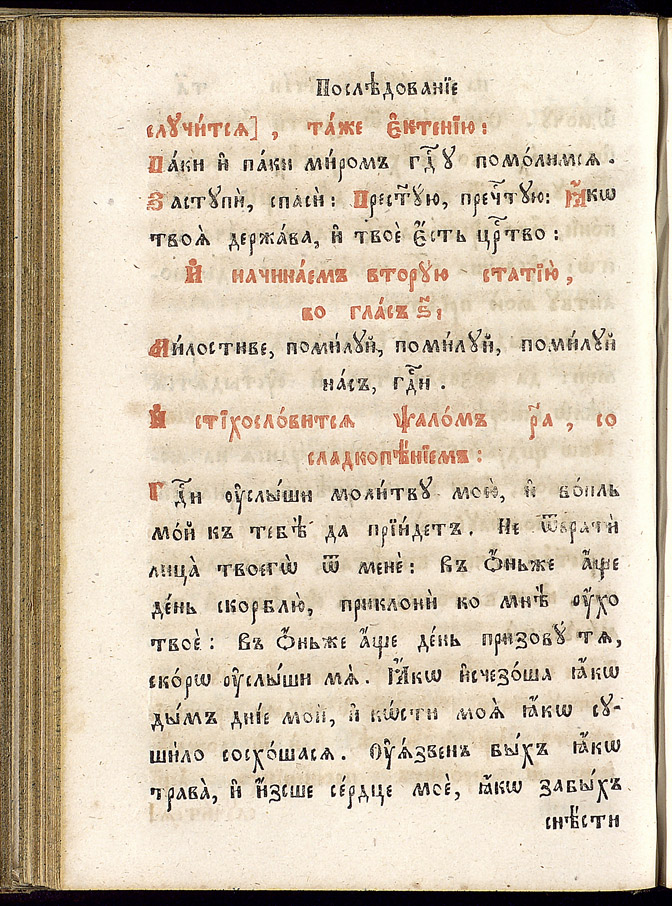 Послѣ́дованїе
случи́тсѧ], та́же є҆ктенїю̀:
Па́ки и҆ па́ки ми́ромъ гдⷭ҇у помо́лимсѧ.
Заступѝ, спасѝ: Престꙋ́ю, пречⷭ҇тую: Ꙗ҆́кѡ
твоѧ̀ держа́ва, и҆ твоѐ є҆́сть црⷭ҇тво:
И҆ начина́емъ вторꙋ́ю статїю̀,
во гла́съ ѕ҃:
Ми́лостиве, поми́лꙋй, поми́лꙋй, поми́лꙋй
на́съ, гдⷭ҇и.
И҆ стїхосло́витсѧ ѱало́мъ р҃а, со
сладкопѣ́нїемъ:
Гдⷭ҇и ᲂу҆слы́ши моли́твꙋ мою̀, и҆ во́пль
мо́й къ тебѣ̀ да прїи́детъ. Не ѿвратѝ
лица̀ твоегѡ̀ ѿ менѐ: Въ ѻ҆́ньже а҆́ще
де́нь скорблю̀, приклонѝ ко мнѣ̀ ᲂу҆́хо
твоѐ: Въ ѻ҆́ньже а҆́ще де́нь призовꙋ́ тѧ,
ско́рѡ ᲂу҆слы́ши мѧ̀. Ꙗ҆́кѡ и҆счезо́ша ꙗ҆́кѡ
ды́мъ дні́е моѝ, и҆ кѡ́сти моѧ̀ ꙗ҆́кѡ сꙋ-
ши́ло сосхо́шасѧ. Оу҆ѧ́звенъ бы́хъ ꙗ҆́кѡ
трава̀, и҆ и҆́зсше се́рдце моѐ, ꙗ҆́кѡ забы́хъ
снѣ́сти